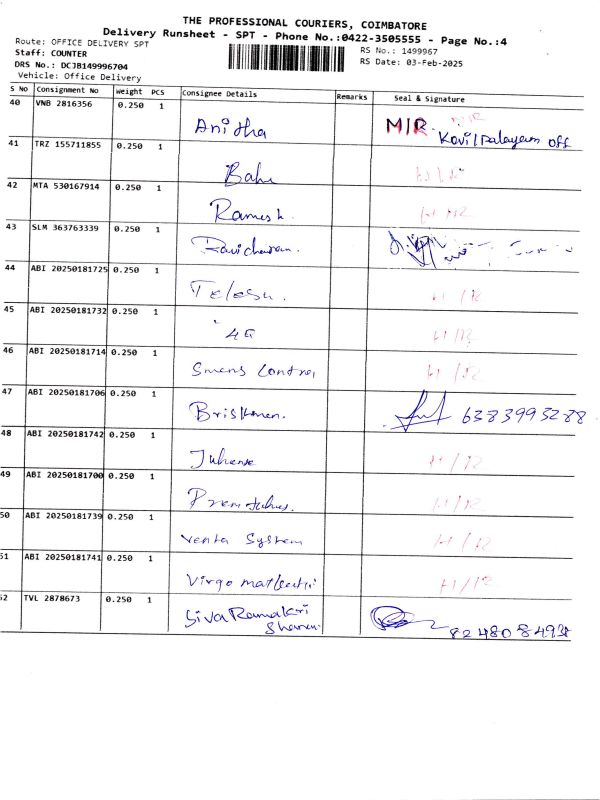 THE PROFESSIONAL COURIERS, COIMBATORE
Delivery Runsheet - SPT - Phone No.:0422-3505555 - Page No.:4
Route: OFFICE DELIVERY SPT
RS No.: 1499967
Staff: COUNTER
RS Date: 03-Feb-2025
DRS No.: DCJB149996704
Vehicle: Office Delivery
S No Consignment No Weight PCS Consignee Details Remarks Seal & Signature
40 VNB 2816356 0.250 1
Anitha M/R. Kovilpalayam off
41 TRZ 155711855 0.250 1
Babu H/R
42 MTA 530167914 0.250 1
Ramesh. H/R
43 SLM 363763339 0.250 1
44 ABI 20250181725 0.250 1
H/R
45 ABI 20250181732 0.250 1
4G H/R
46 ABI 20250181714 0.250 1
H/R
47 ABI 20250181706 0.250 1
6383995288
48 ABI 20250181742 0.250 1
H/R
49 ABI 20250181700 0.250 1
Prem H/R
50 ABI 20250181739 0.250 1
Venta System H/R
51 ABI 20250181741 0.250 1
Virgo H/R
52 TVL 2878673 0.250 1
Siva Ramakri
8248084938